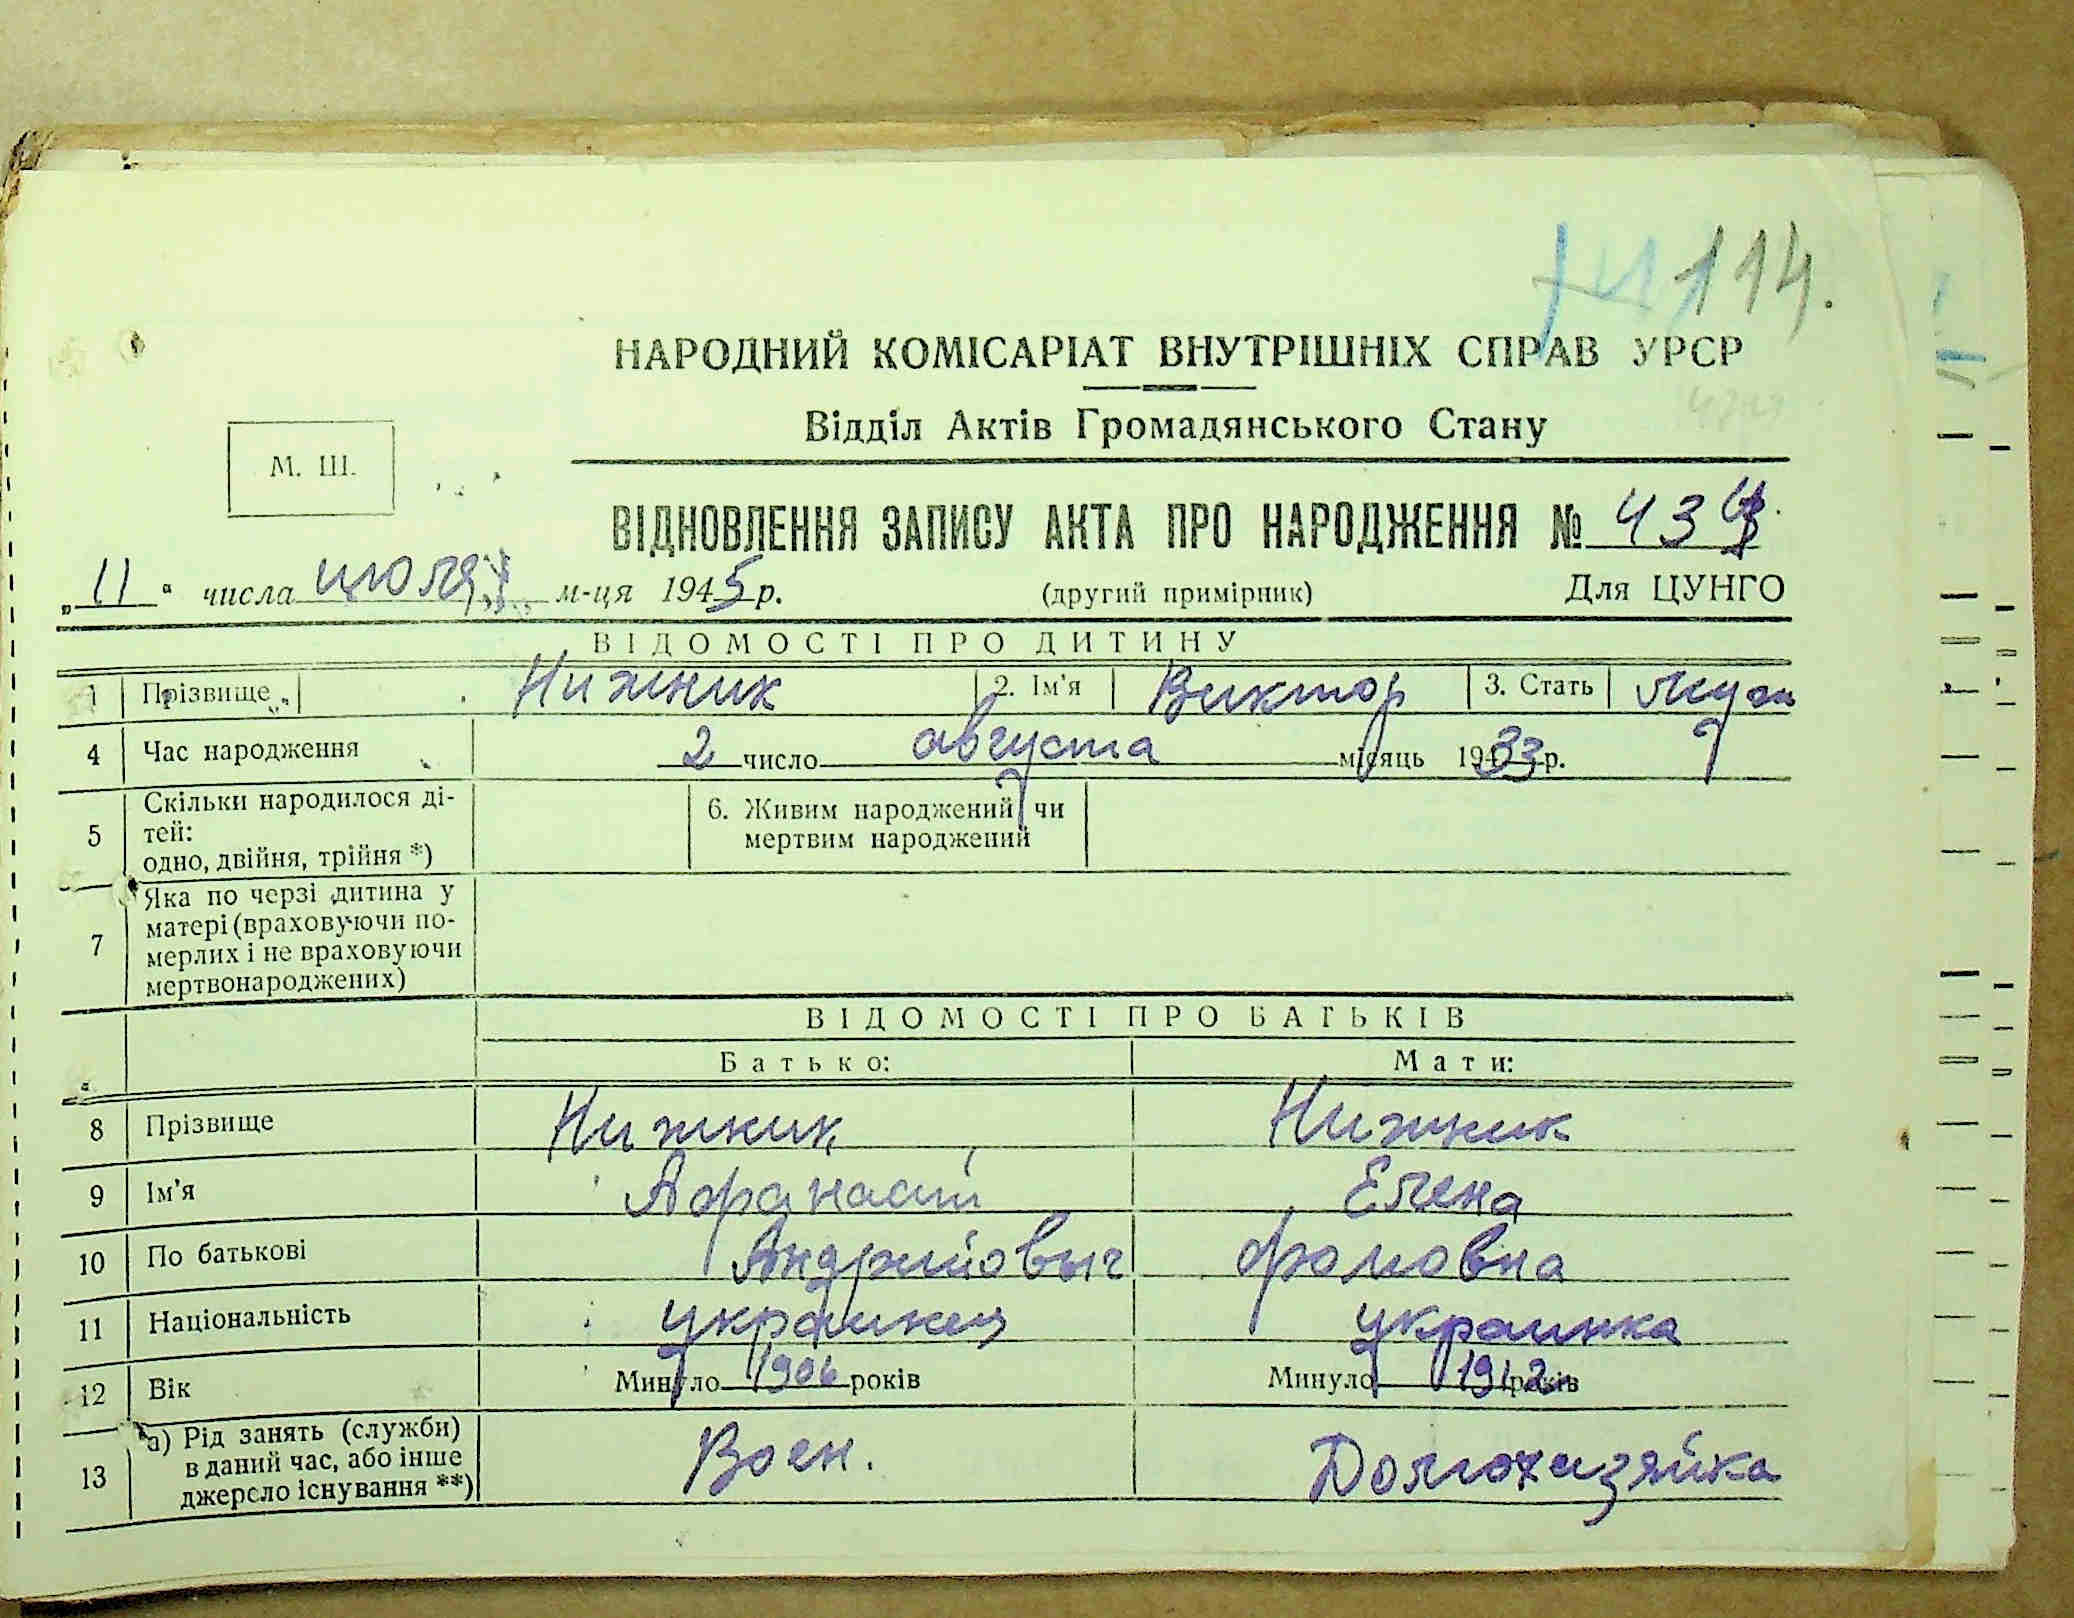 114.
НАРОДНИЙ КОМІСАРІАТ ВНУТРІШНІХ СПРАВ УРСР
Відділ Актів Громадянського Стану
М. Ш.
ВІДНОВЛЕННЯ ЗАПИСУ АКТА ПРО НАРОДЖЕННЯ № 434
„11“ числа июля м-ця 1945 р. (другий примірник) Для ЦУНГО
ВІДОМОСТІ ПРО ДИТИНУ
1 Прізвище Нижник 2. Ім'я Виктор 3. Стать муж
4 Час народження 2 число августа місяць 1933 р.
5 Скільки народилося ді-
тей:
одно, двійня, трійня *)
6. Живим народжений чи
мертвим народжений
7 Яка по черзі дитина у
матері (враховуючи по-
мерлих і не враховуючи
мертвонароджених)
ВІДОМОСТІ ПРО БАТЬКІВ
Батько: Мати:
8 Прізвище Нижник Нижник
9 Ім'я Афанасий Елена
10 По батькові Андрийовыч Фомовна
11 Національність украинец украинка
12 Вік Минуло 1906 років Минуло 1912 років
13 а) Рід занять (служби)
в даний час, або інше
джерело існування **)
Воен. Домохизяйка